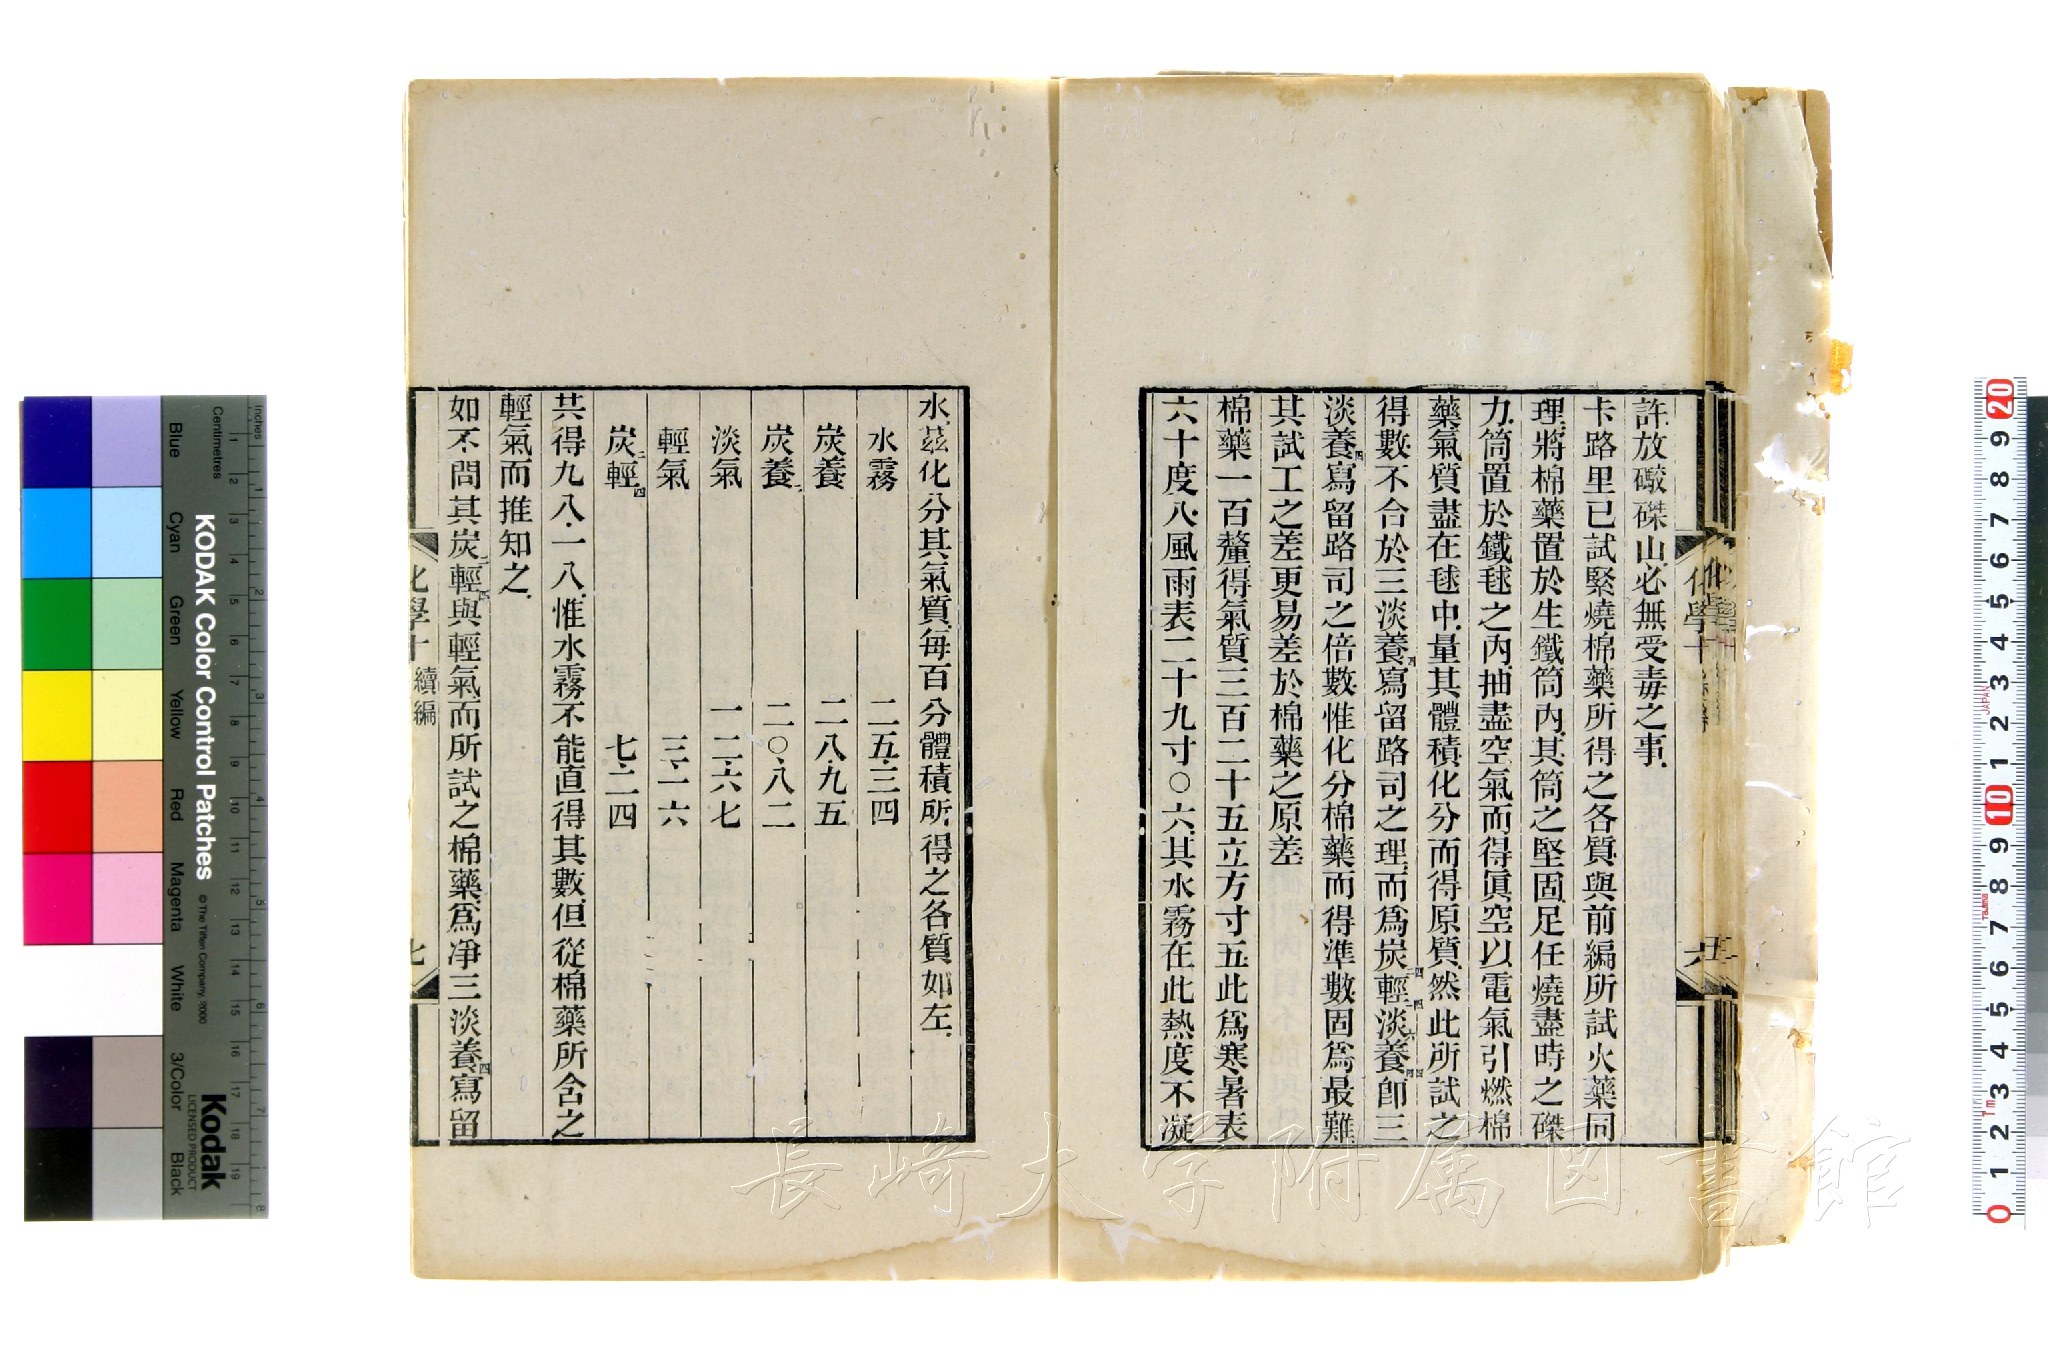 許放礮磔山必無受毒之事
卡路里已試緊燒棉藥所得之各質與前編所試火藥同
理將棉藥置於生鐵筒內其筒之堅固足任燒盡時之磔
力筒置於鐵毬之內抽盡空氣而得眞空以電氣引燃棉
藥氣質盡在毬中量其體積化分而得原質然此所試之
得數不合於三淡養四寫留路司之理而爲炭輕淡養卽三
淡養四寫留路司之倍數惟化分棉藥而得準數固爲最難
其試工之差更易差於棉藥之原差
棉藥一百釐得氣質三百二十五立方寸五此爲寒暑表
六十度八風雨表二十九寸〇六其水霧在此熱度不凝
化學十
六
水茲化分其氣質每百分體積所得之各質如左
水霧 二五.三四
炭養 二八.九五
炭養二 二〇.八二
淡氣 一二.六七
輕氣 三.一六
炭二輕四 七.二四
共得九八.一八惟水霧不能直得其數但從棉藥所含之
輕氣而推知之
如不問其炭二輕四與輕氣而所試之棉藥爲淨三淡養四寫留
化學十 續編
七
KODAK Color Control Patches
© The Tiffen Company, 2000
Kodak
LICENSED PRODUCT
Inches
Centimetres
Blue
Cyan
Green
Yellow
Red
Magenta
White
3/Color
Black
長崎大学附属図書館